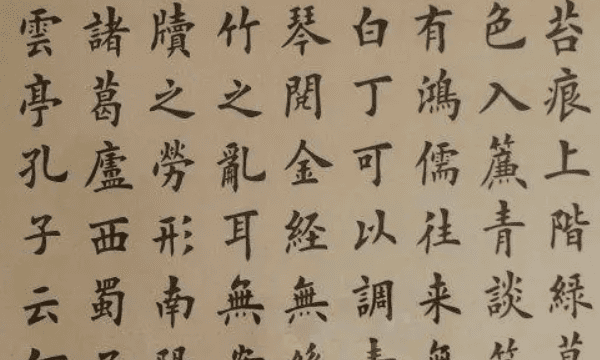 苔痕上階緑草
色入簾青談笑
有鴻儒往来無
白丁可以調素
琴閱金經無絲
竹之亂耳無案
牘之勞形南陽
諸葛廬西蜀子
雲亭孔子云何